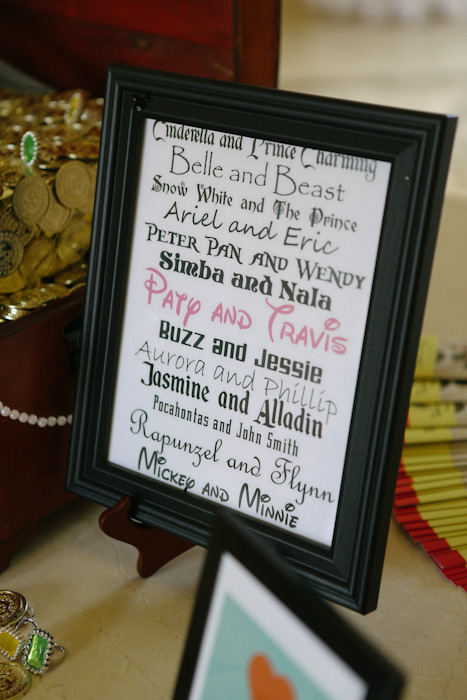 Cinderella and Prince Charming
Belle and Beast
Snow White and The Prince
Ariel and Eric
Peter Pan and Wendy
Simba and Nala
Paty and Travis
Buzz and Jessie
Aurora and Phillip
Jasmine and Alladin
Pocahontas and John Smith
Rapunzel and Flynn
Mickey and Minnie